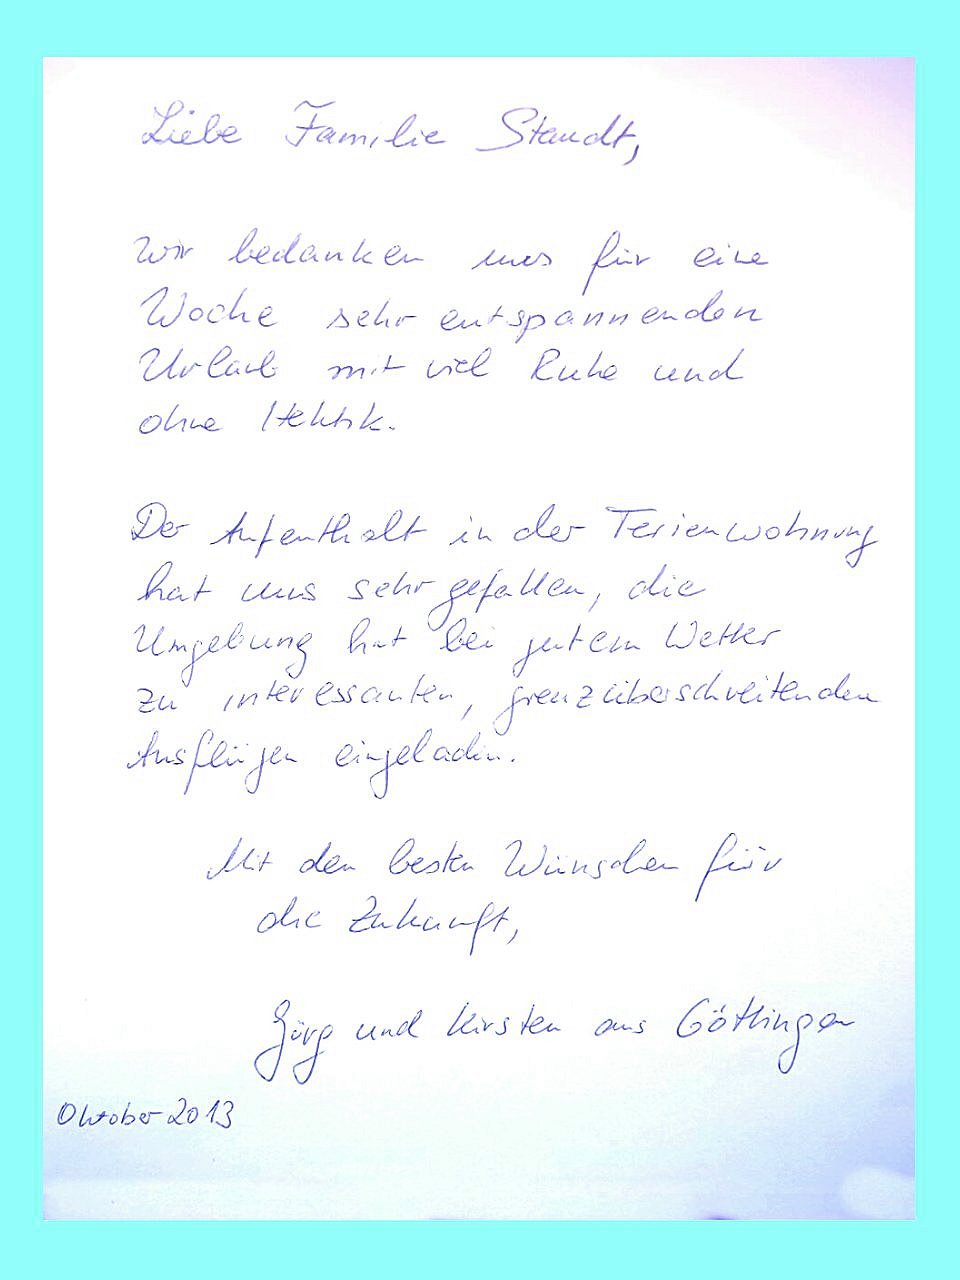 Liebe Familie Staudt,
Wir bedanken uns für eine
Woche sehr entspannenden
Urlaub mit viel Ruhe und
ohne Hektik.
Der Aufenthalt in der Ferienwohnung
hat uns sehr gefallen, die
Umgebung hat bei gutem Wetter
zu interessanten, grenzüberschreitenden
Ausflügen eingeladen.
Mit den besten Wünschen für
die Zukunft,
Görg und Kirsten aus Göttingen
Oktober 2013